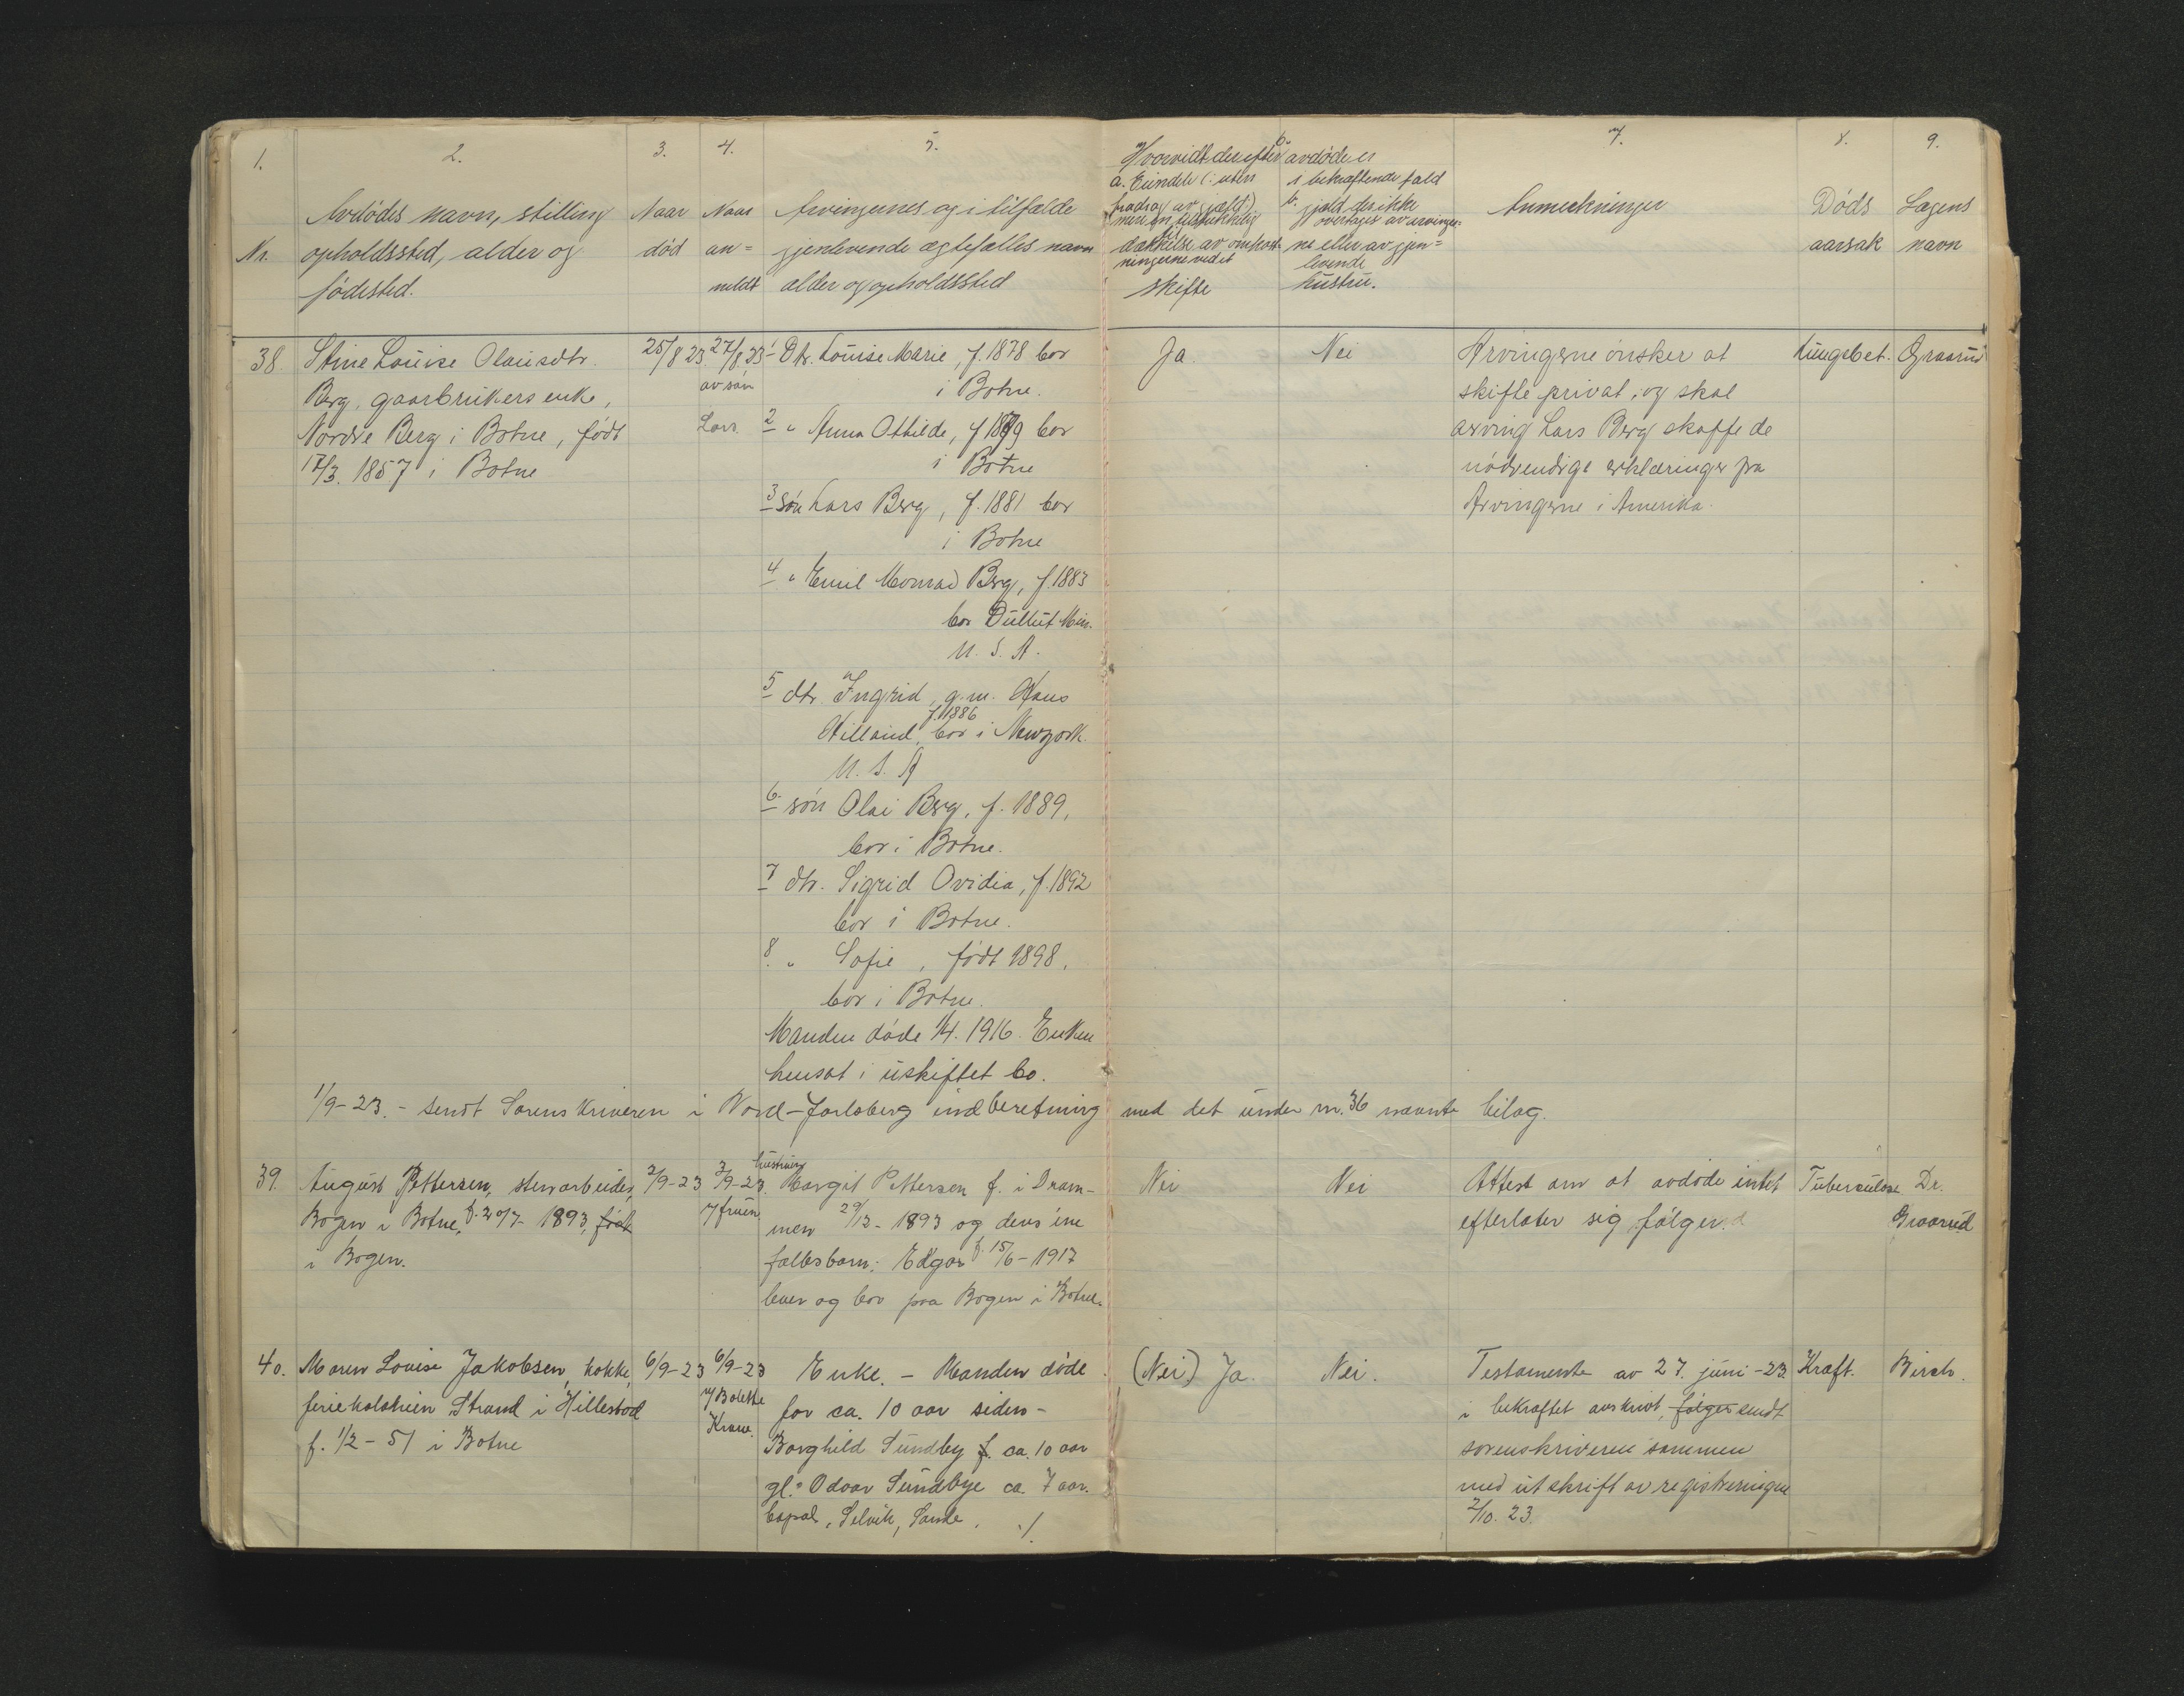 1. 2. 3. 4. 5. 6. 7. 8. 9.
Nr.
Avdödes navn, stilling
opholdssted, alder og
födested.
Naar
död
Naar
an=
meldt
Arvingernes og i tilfælde
gjenlevende ægtefælles navn
alder og opholdssted
Hvorvidt der efter avdöde er
a. Eiendele (: uten
fradrag av gjæld)
mere en tilstrækkelig
til
dækkelse av omkost-
ningerne ved et
skifte
i bekræftende fald
b. gjæld der ikke
overtages av arvinger-
ne eller av gjen=
levende
hustru.
Anmerkninger
Döds
aarsak
Lægens
navn
38.
Stine Louise Olausdtr.
Berg, gaarbrukers enke,
Nordre Berg i Botne, født
17/3. 1857 i Botne
25/8 23.
27/8 23
av sön
Lars.
1 Dtr. Louise Marie, f. 1878 bor
i Botne.
2 " Anna Othilde, f 1879 bor
i Botne
3 sön Lars Berg, f. 1881 bor
i Botne
4 " Emil Monrad Berg, f. 1883
bor Dullut Min.
U. S. A.
5 dtr. Ingrid, g.m. Hans
Hilland, f. 1886 bor i Newyork.
U. S. A
6. sön Olai Berg, f. 1889,
bor i Botne.
7 dtr. Sigrid Ovidia, f. 1892
bor i Botne.
8. " Sofie, födt 1898,
bor i Botne.
Manden döde 1/4. 1916. Enken
hensat i uskiftet bo.
Ja.
Nei
Arvingerne önsker at
skifte privat, og skal
arving Lars Berg skaffe de
nödvendige erklæringer fra
Arvingerne i Amerika.
Lungebet.
Graarud
1/9-23. - sendt Sorenskriveren i Nord-Jarlsberg indberetning med det under nr. 36 nævnte bilag.
39.
August Pettersen, stenarbeider,
Bogen i Botne, f. 20/7- 1893, født
i Bogen.
2/9-23
3/9-23.
v/ fruen
hustruen
Margit Pettersen f. i Dram-
men 29/12- 1893 og dens ene
fællesbarn: Edgar f. 15/6-1917
lever og bor paa Bogen i Botne.
Nei
Nei
Attest om at avdöde intet
efterlater sig, følger.
Tuberculose
Dr.
Graarud
40.
Maren Lovise Jakobsen, kokke,
feriekolonien Strand i Hillestad
f. 1/2-51 i Botne
6/9-23
6/9-23
v/ Bolette
Enke. - Manden döde
for ca. 10 aar siden -
Borghild Sundby f. ca. 10 aar
gl. " Odvar Sundbye ca. 7 aar.
Selvik, Sande. ./.
(Nei) Ja.
Nei.
Testamente av 27. juni -23.
i bekræftet avskrivt, følger sendt
sorenskriveren sammen
med utskrift av registreringen
2/10. 23.
Kræft.
Birch.